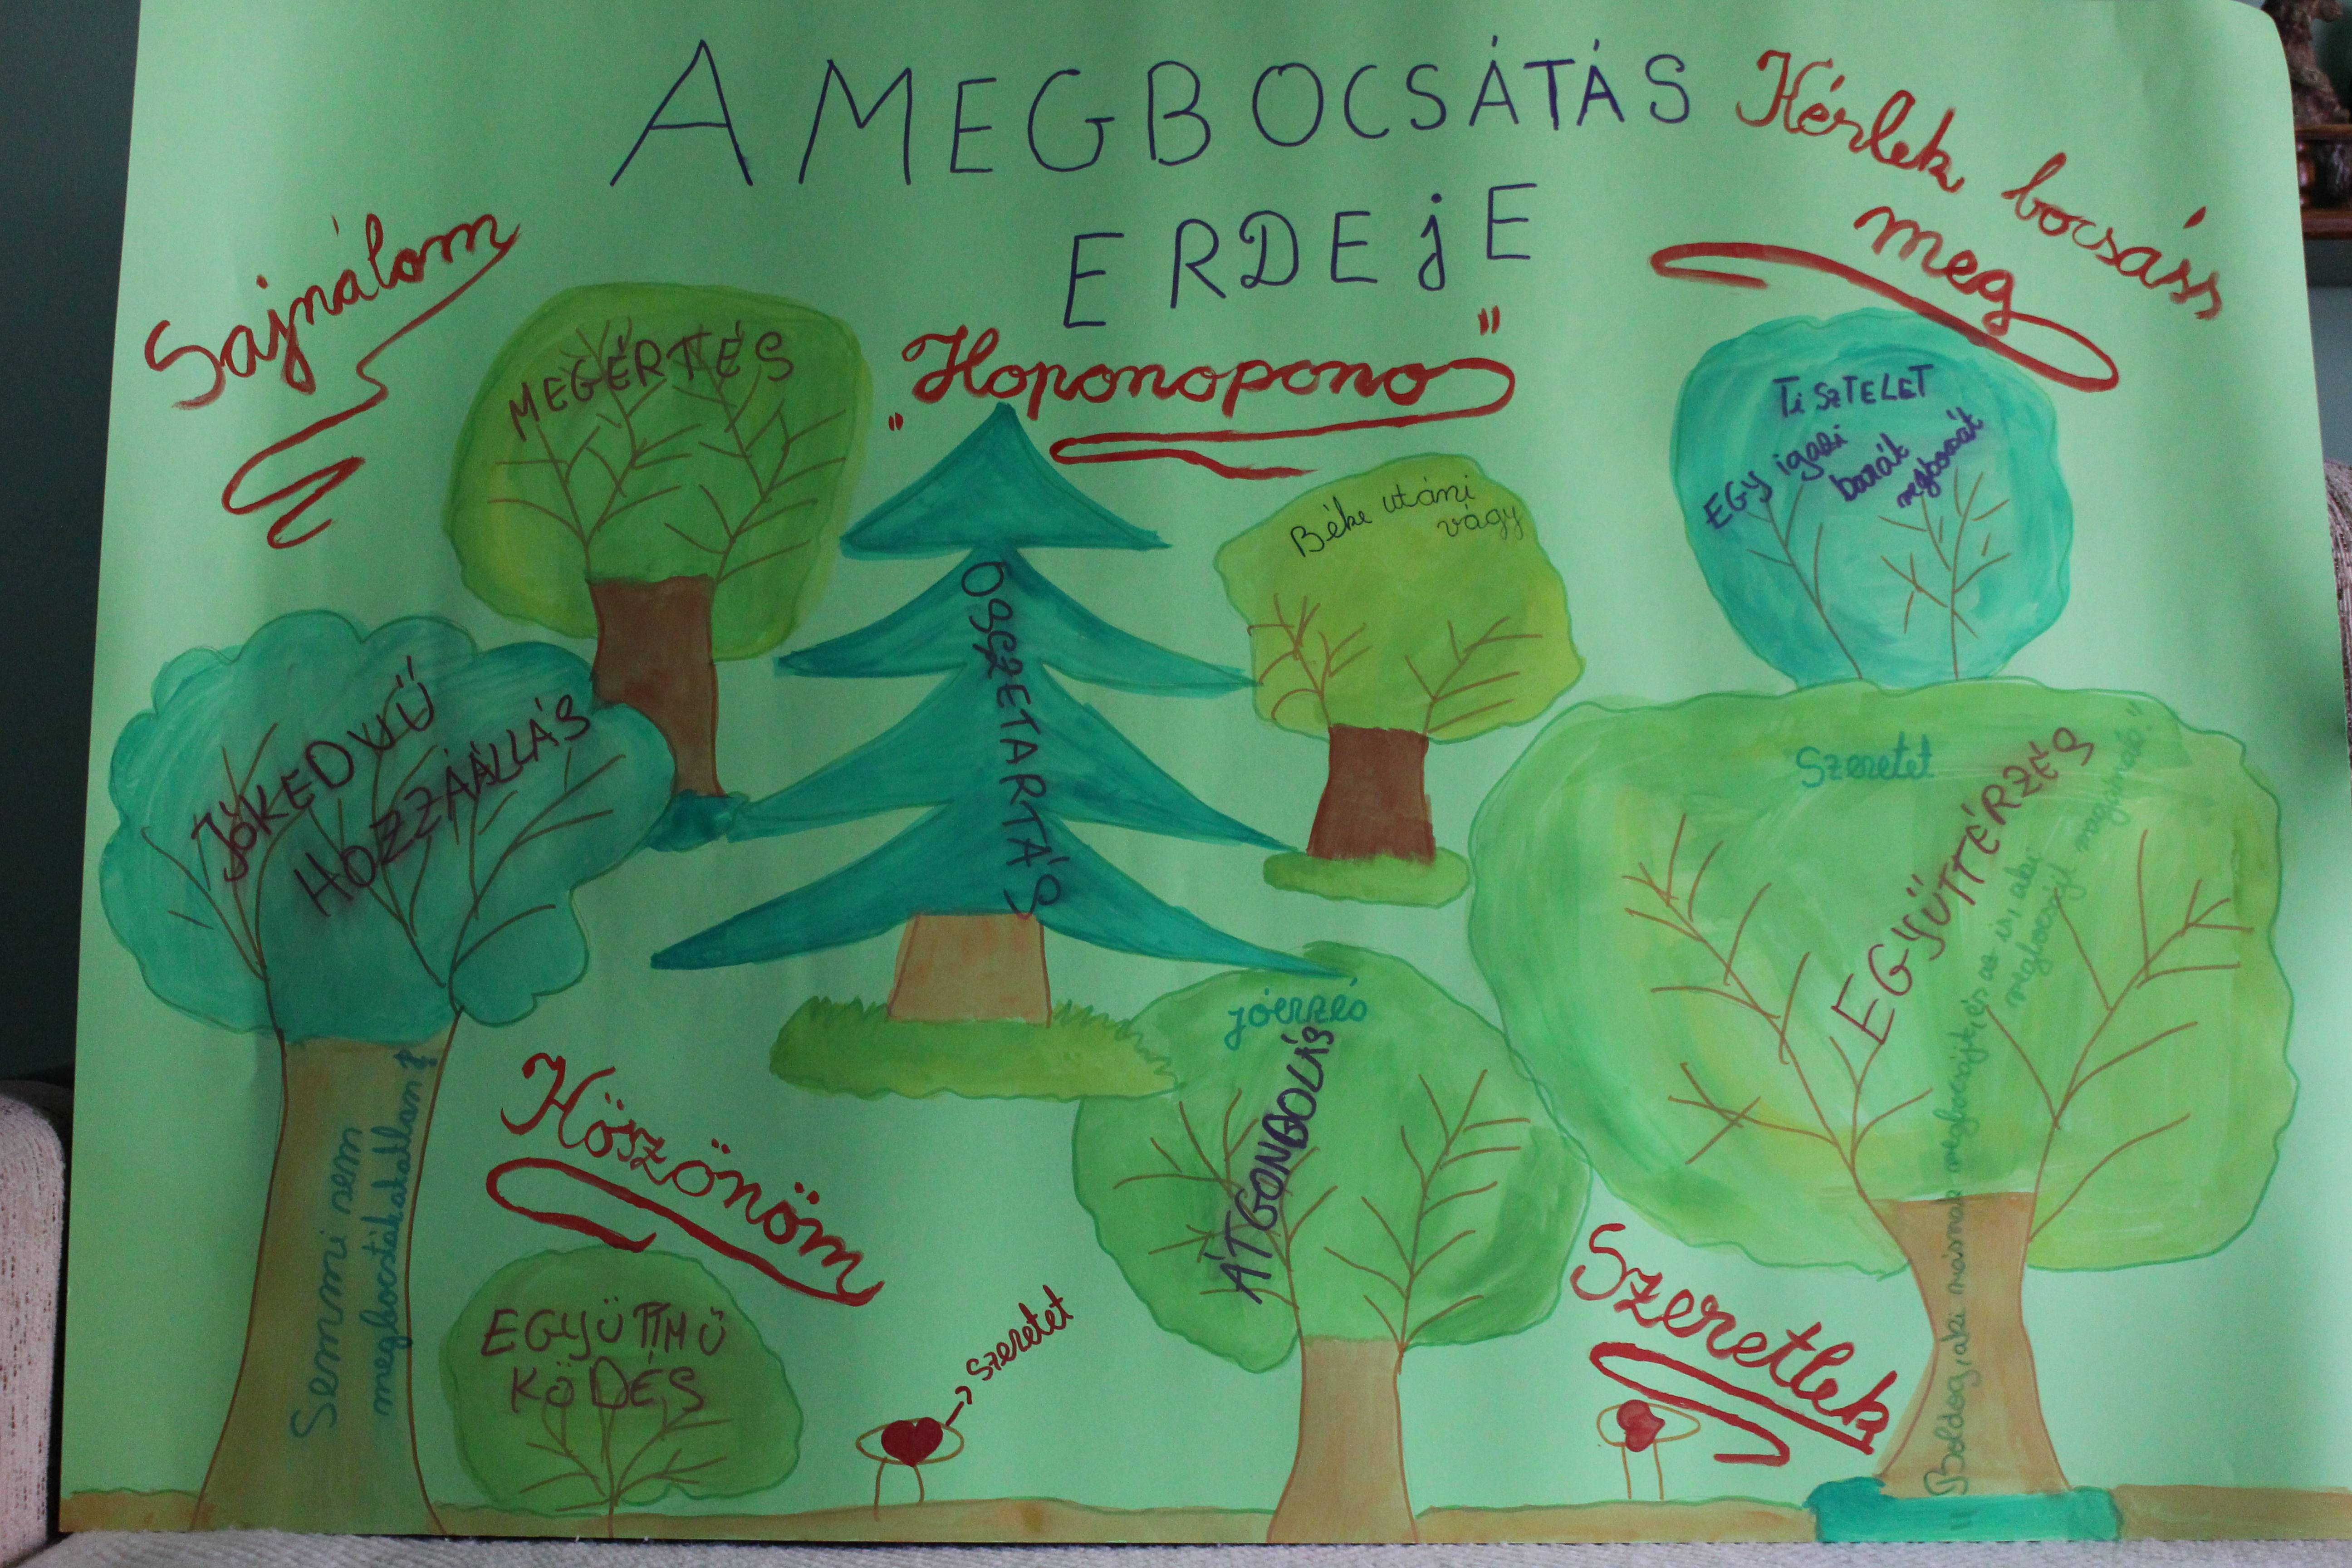 A MEGBOCSÁTÁS
ERDEJE
Sajnálom
Kérlek bocsáss
meg
„Hoponopono"
MEGÉRTÉS
Béke utáni
vágy
TiSZTELET
EGY igazi
barát
megbocsát
JÓKEDVŰ
HOZZÁÁLLÁS
ÖSSZETARTÁS
Szeretet
EGYÜTTÉRZÉS
"Boldog, aki másnak megbocsájt, és az is, aki
megbocsájt magának."
jóérzés
ÁTGONDOLÁS
Semmi sem
megbocsáthatatlan?
Köszönöm
EGYÜTTMŰ
KÖDÉS
szeretet
Szeretlek